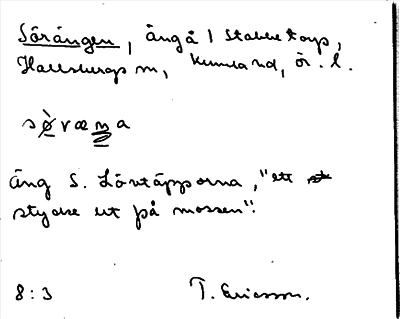 Sörängen, äng å 1 Stabbetorp,
Hallsbergs sn, Kumla hd, ör. l.
sø̀ræŋa
Äng S. Lövtäpporna, "ett
stycke ut på mossen".
8:3 T. Ericsson.